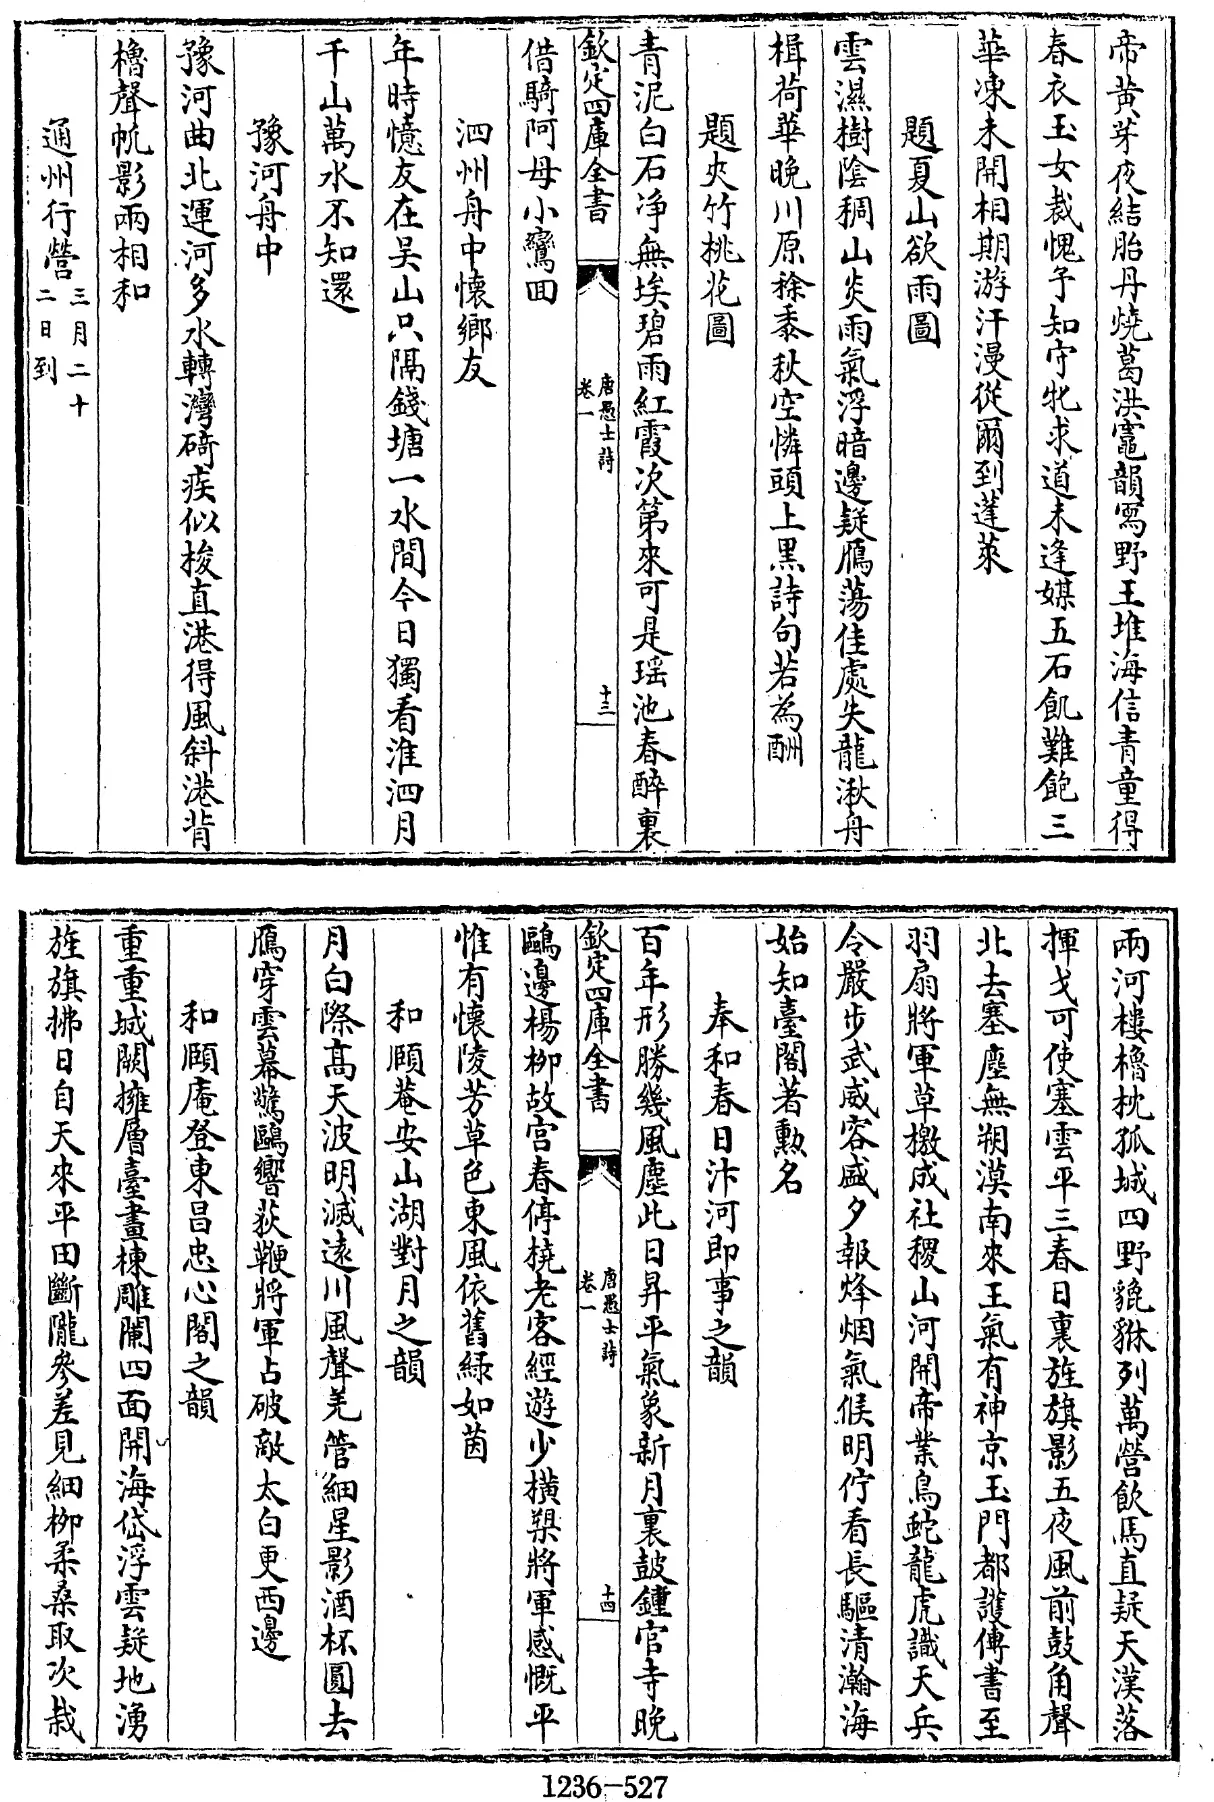 帝黄芽夜結胎丹燒葛洪竈韻寫野王堆海信青童得
春衣玉女裁愧予知守牝求道未逢媒五石飢難飽三
華凍未開相期游汗漫從爾到蓬萊
題夏山欲雨圖
雲濕樹陰稠山炎雨氣浮暗邊疑鴈蕩佳處失龍湫舟
楫荷華晚川原稌黍秋空憐頭上黑詩句若為酬
題夾竹桃花圖
青泥白石净無埃碧雨紅霞次第來可是瑶池春醉裏
欽定四庫全書
唐愚士詩
卷一
十三
借騎阿母小鸞回
泗州舟中懷鄉友
年時憶友在吴山只隔錢塘一水間今日獨看淮泗月
千山萬水不知還
豫河舟中
豫河曲北運河多水轉灣碕疾似梭直港得風斜港背
櫓聲帆影兩相和
通州行營三月二十
二日到
兩河樓櫓枕孤城四野貔貅列萬營飲馬直疑天漢落
揮戈可使塞雲平三春日裏旌旗影五夜風前鼓角聲
北去塞塵無朔漠南來王氣有神京玉門都護傳書至
羽扇將軍草檄成社稷山河開帝業鳥蛇龍虎識天兵
令嚴步武威容盛夕報烽烟氣候明佇看長驅清瀚海
始知臺閣著勲名
奉和春日汴河即事之韻
百年形勝幾風塵此日昇平氣象新月裏鼓鍾官寺晚
欽定四庫全書
唐愚士詩
卷一
十四
鷗邊楊柳故宫春停橈老客經遊少横槊將軍感慨平
惟有懷陵芳草色東風依舊緑如茵
和頤菴安山湖對月之韻
月白際高天波明滅遠川風聲羌管細星影酒杯圓去
鴈穿雲幕驚鷗響荻鞭將軍占破敵太白更西邊
和頤庵登東昌忠心閣之韻
重重城闕擁層臺畫棟雕闌四面開海岱浮雲疑地湧
旌旗拂日自天來平田斷隴參差見細柳柔桑取次栽
1236-527